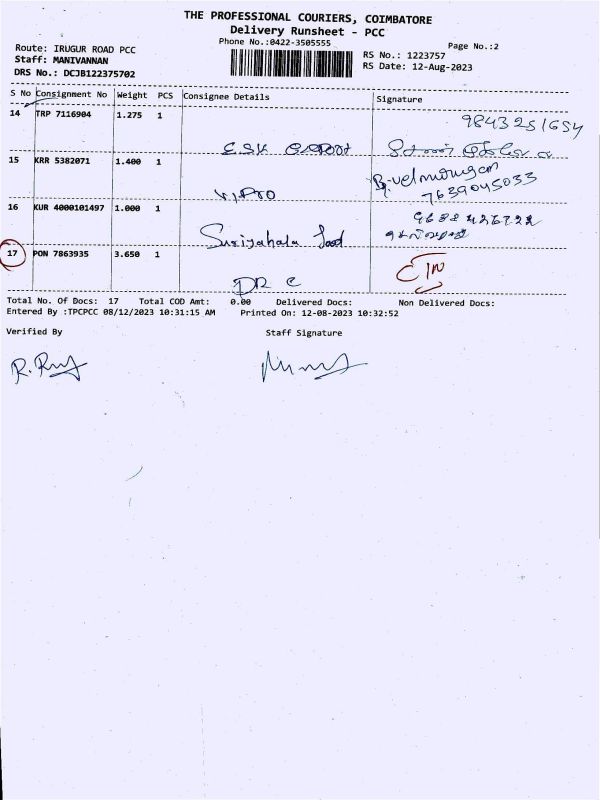 THE PROFESSIONAL COURIERS, COIMBATORE
Delivery Runsheet - PCC
Phone No.:0422-3505555
Page No.:2
Route: IRUGUR ROAD PCC
Staff: MANIVANNAN
DRS No.: DCJB122375702
RS No.: 1223757
RS Date: 12-Aug-2023
S No Consignment No Weight PCS Consignee Details Signature
14 TRP 7116904 1.275 1
9843251654
ESK
15 KRR 5382071 1.400 1
B.velmurugan
7639045033
16 KUR 4000101497 1.000 1
Suriyahala food
17 PON 7863935 3.650 1
Total No. Of Docs: 17 Total COD Amt: 0.00 Delivered Docs: Non Delivered Docs:
Entered By :TPCPCC 08/12/2023 10:31:15 AM Printed On: 12-08-2023 10:32:52
Verified By Staff Signature